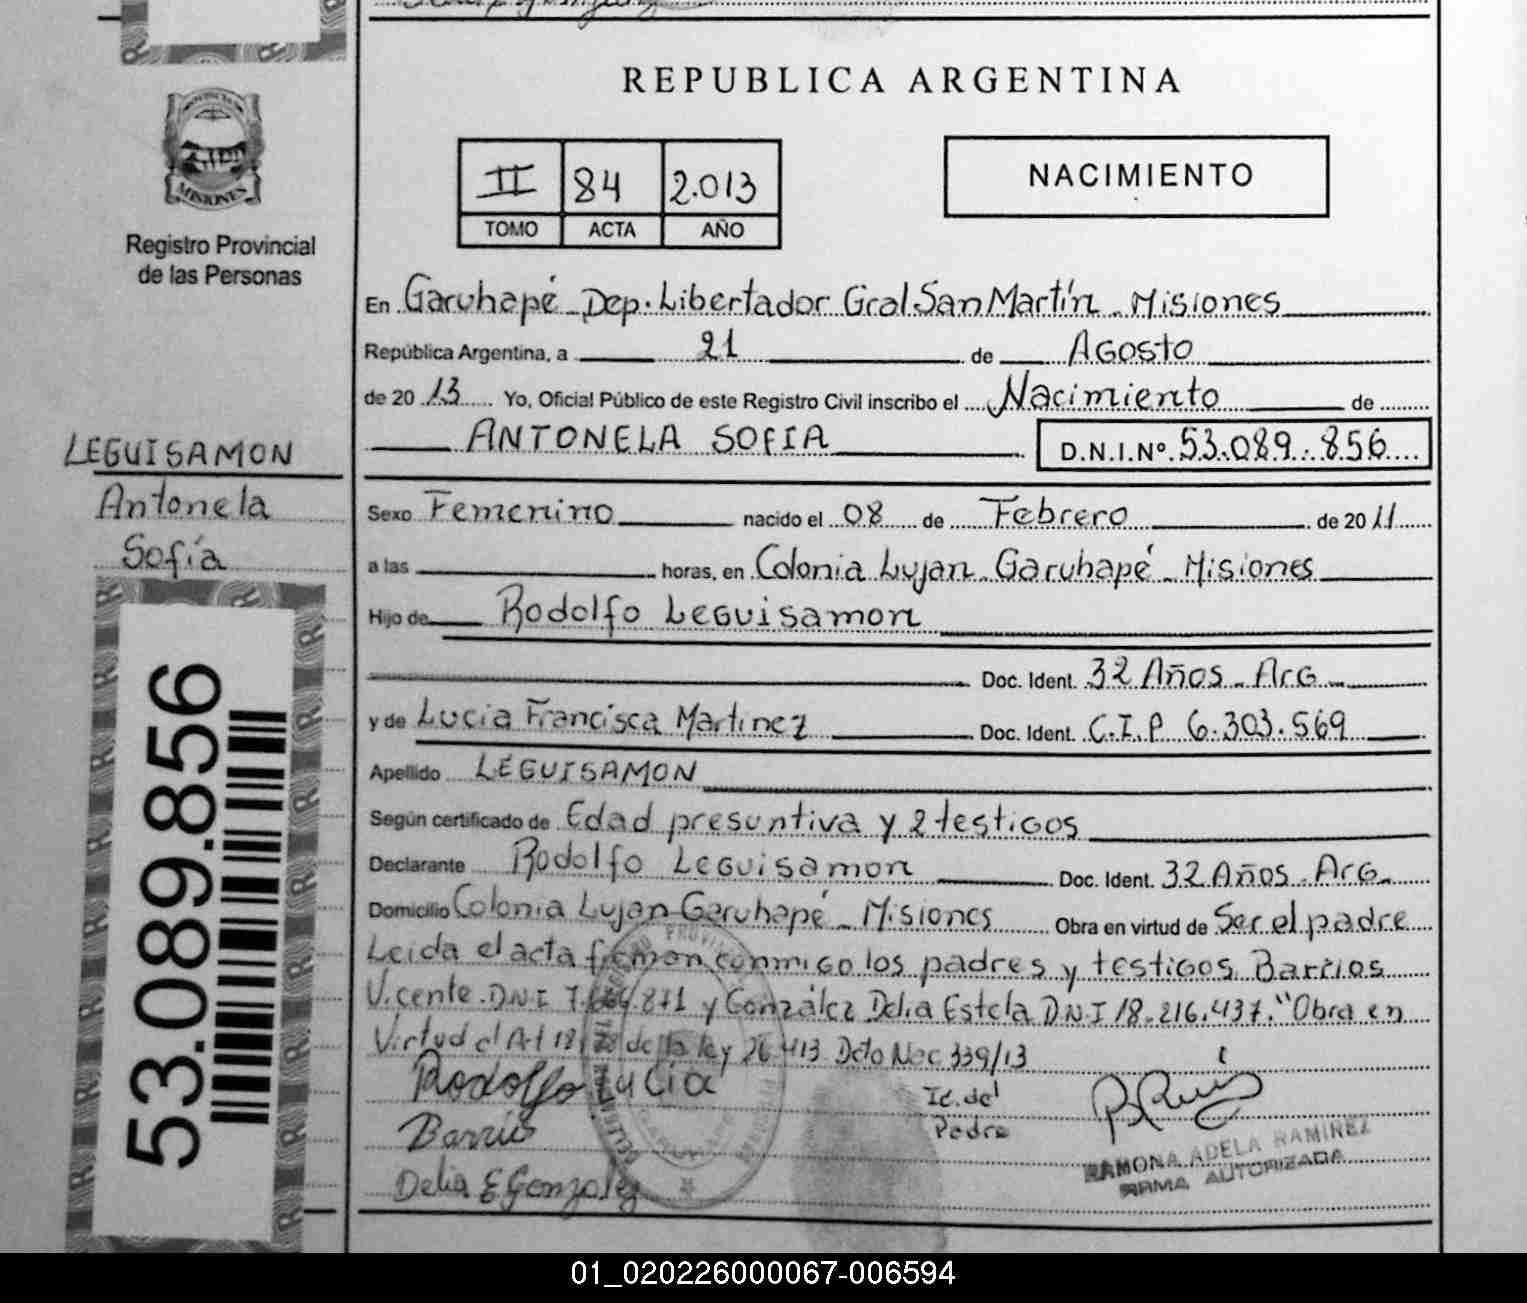 REPUBLICA ARGENTINA
MISIONES
Registro Provincial
de las Personas
II 84 2.013
TOMO ACTA AÑO
NACIMIENTO
En Garuhapé - Dep. Libertador Gral San Martín - Misiones
República Argentina, a 21 de Agosto
de 2013 Yo, Oficial Público de este Registro Civil inscribo el Nacimiento de
ANTONELA SOFIA D.N.I.Nº. 53.089.856
LEGUISAMON
Antonela
Sofía
53.089.856
Sexo Femenino nacido el 08 de Febrero de 2011
a las horas, en Colonia Lujan - Garuhapé - Misiones
Hijo de Rodolfo Leguisamon
Doc. Ident. 32 Años - Arg
y de Lucia Francisca Martinez Doc. Ident. C.I.P 6.303.569
Apellido LEGUISAMON
Según certificado de Edad presuntiva y 2 testigos
Declarante Rodolfo Leguisamon Doc. Ident. 32 Años - Arg
Domicilio Colonia Lujan - Garuhapé - Misiones Obra en virtud de Ser el padre
Leida el acta firman conmigo los padres y testigos Barrios
Vicente. D.N.I y González Delia Estela D.N.I 18.216.437. "Obra en
Virtud de la ley 26.413 Dcto Nac 339/13
Rodolfo Lucia
Barrios
Delia E Gonzalez
Id. del
Padre
RAMONA ADELA RAMIREZ
FIRMA AUTORIZADA
01_020226000067-006594